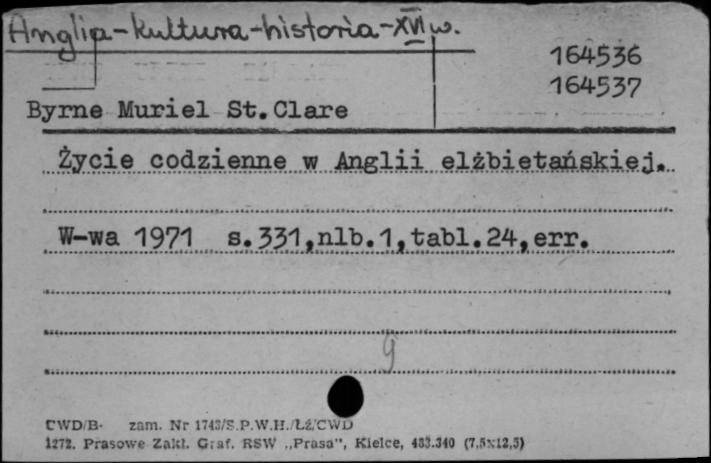 Anglia-kultura-historia-XVI w.
164536
164537
Byrne Muriel St.Clare
Życie codzienne w Anglii elżbietańskiej.
W-wa 1971 s.331,nlb.1,tabl.24,err.
g
CWD/B- zam. Nr 1743/S.P.W.H./Łź/CWD
1272. Prasowe Zakł. Graf. RSW „Prasa", Kielce, 483.340 (7,5x12,5)